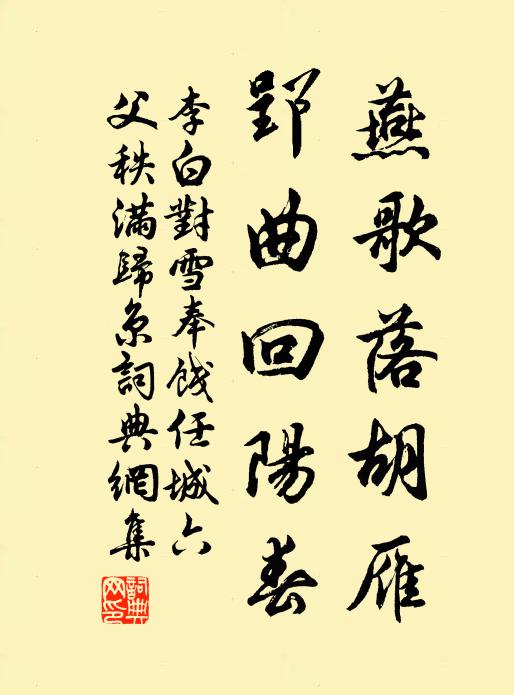 燕歌落胡雁
郢曲回陽春
李白對雪奉餞任城六
父秩滿歸京詞典網集
詞典網印